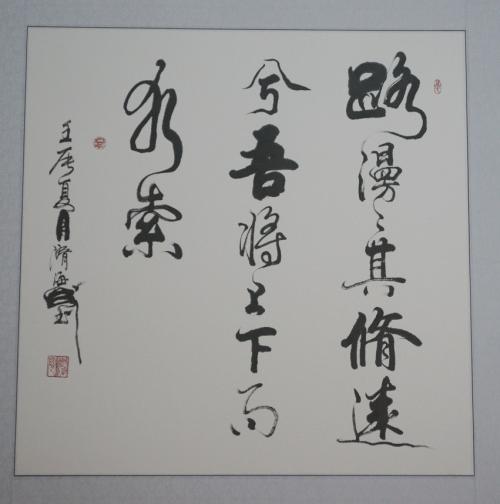 路漫〻其脩遠
兮吾將上下而
求索
壬辰夏月